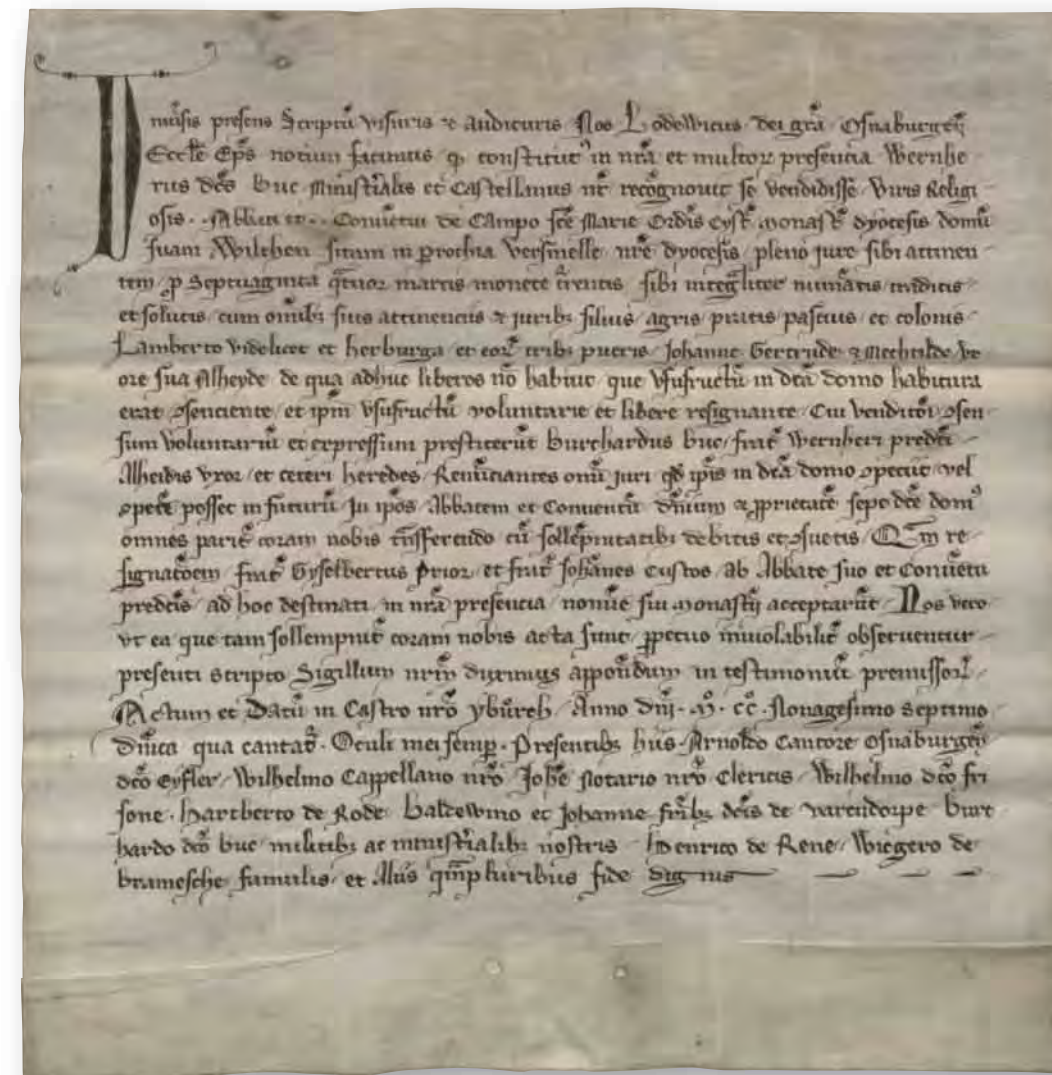 Univsis presens Scriptū visuris et audituris Nos Lodewicus dei grā Osnaburgeñ
Eccłe Eps̄ notum facimus qꝫ constitutꝰ in nr̄a et multoꝝ presencia Wernhe
rus dc̄s Buc ministīalis et castellanus nr̄ recōgnovit se vendidisse viris Religi
osis ·· Abbati et ·· Conventui de Campo sc̄e Marie Ordīs Cyst̄ monast̄ dyocesis domū
suam Wilchen sitam in prochia Versmelle nr̄e dyocesis pleno jure sibi attinen
tem ꝓ Septuaginta q̄tuor marcis monete īrentis sibi integͣliter numātis traditis
et solutis cum omībꝫ suis attinenciis et juribꝫ siluis agris pratis pascuis et colonis
Lamberto videlicet et herburga et eoꝝ tribꝫ pueris Johanne Gertrude et Mechtilde Vx
ore sua Alheyde de qua adhuc liberos nō habuit que Vsufructū in dc̄a domo habitura
erat ꝯsenciente et ip̄m vsufructū voluntarie et libere resignante Cui venditōi ꝯsen
sum voluntariū et expressum prestiterūt Burchardus Buc frat̄ Wernheri predc̄i
Alheidis vxor et ceteri heredes Renūciantes omī juri qd̄ ip̄is in dc̄a domo ꝯpetiit vel
ꝯpete᷑ posset in futurū In ip̄os Abbatem et Conventū dn̄ium et ꝓprietatē sepe dc̄e domꝰ
omnes parit̄ coram nobis tn̄sferendo cū sollēpnitatibꝫ debitis et ꝯsuetis Quā re
signatōem frat̄ Gyselbertus Prior et frat̄ Johānes Custos ab Abbate suo et Conventu
predc̄is ad hoc destinati in nr̄a presencia nomīe sui monast̄ii acceptarūt Nos vero
vt ea que tam sollempnit̄ coram nobis acta sunt ꝑpetuo inviolabilit̄ observentur
presenti scripto Sigillum nr̄m duximus appōndum in testimoniū premissoꝝ
Actum et Datū in Castro nr̄o yburch Anno dn̄i · M̊ · CC · Nonagesimo septimo
dn̄ica qua cantat̄ · Oculi mei semꝑ · Presentibꝫ hiis · Arnoldo Cantore Osnaburgeñ
dc̄o Eyfler Wilhelmo Cappellano nr̄o Joh̄e Notario nr̄o Clericis Wilhelmo dc̄o fri
sone · hartberto de Rode Baldewino et Johanne fr̄ibꝫ dc̄is de varendorpe Burc
hardo dc̄o buc militibꝫ ac ministīalibꝫ nostris Henrico de Rene Wicgero de
bramesche famulis et Aliis qm̄pluribus fide dignis